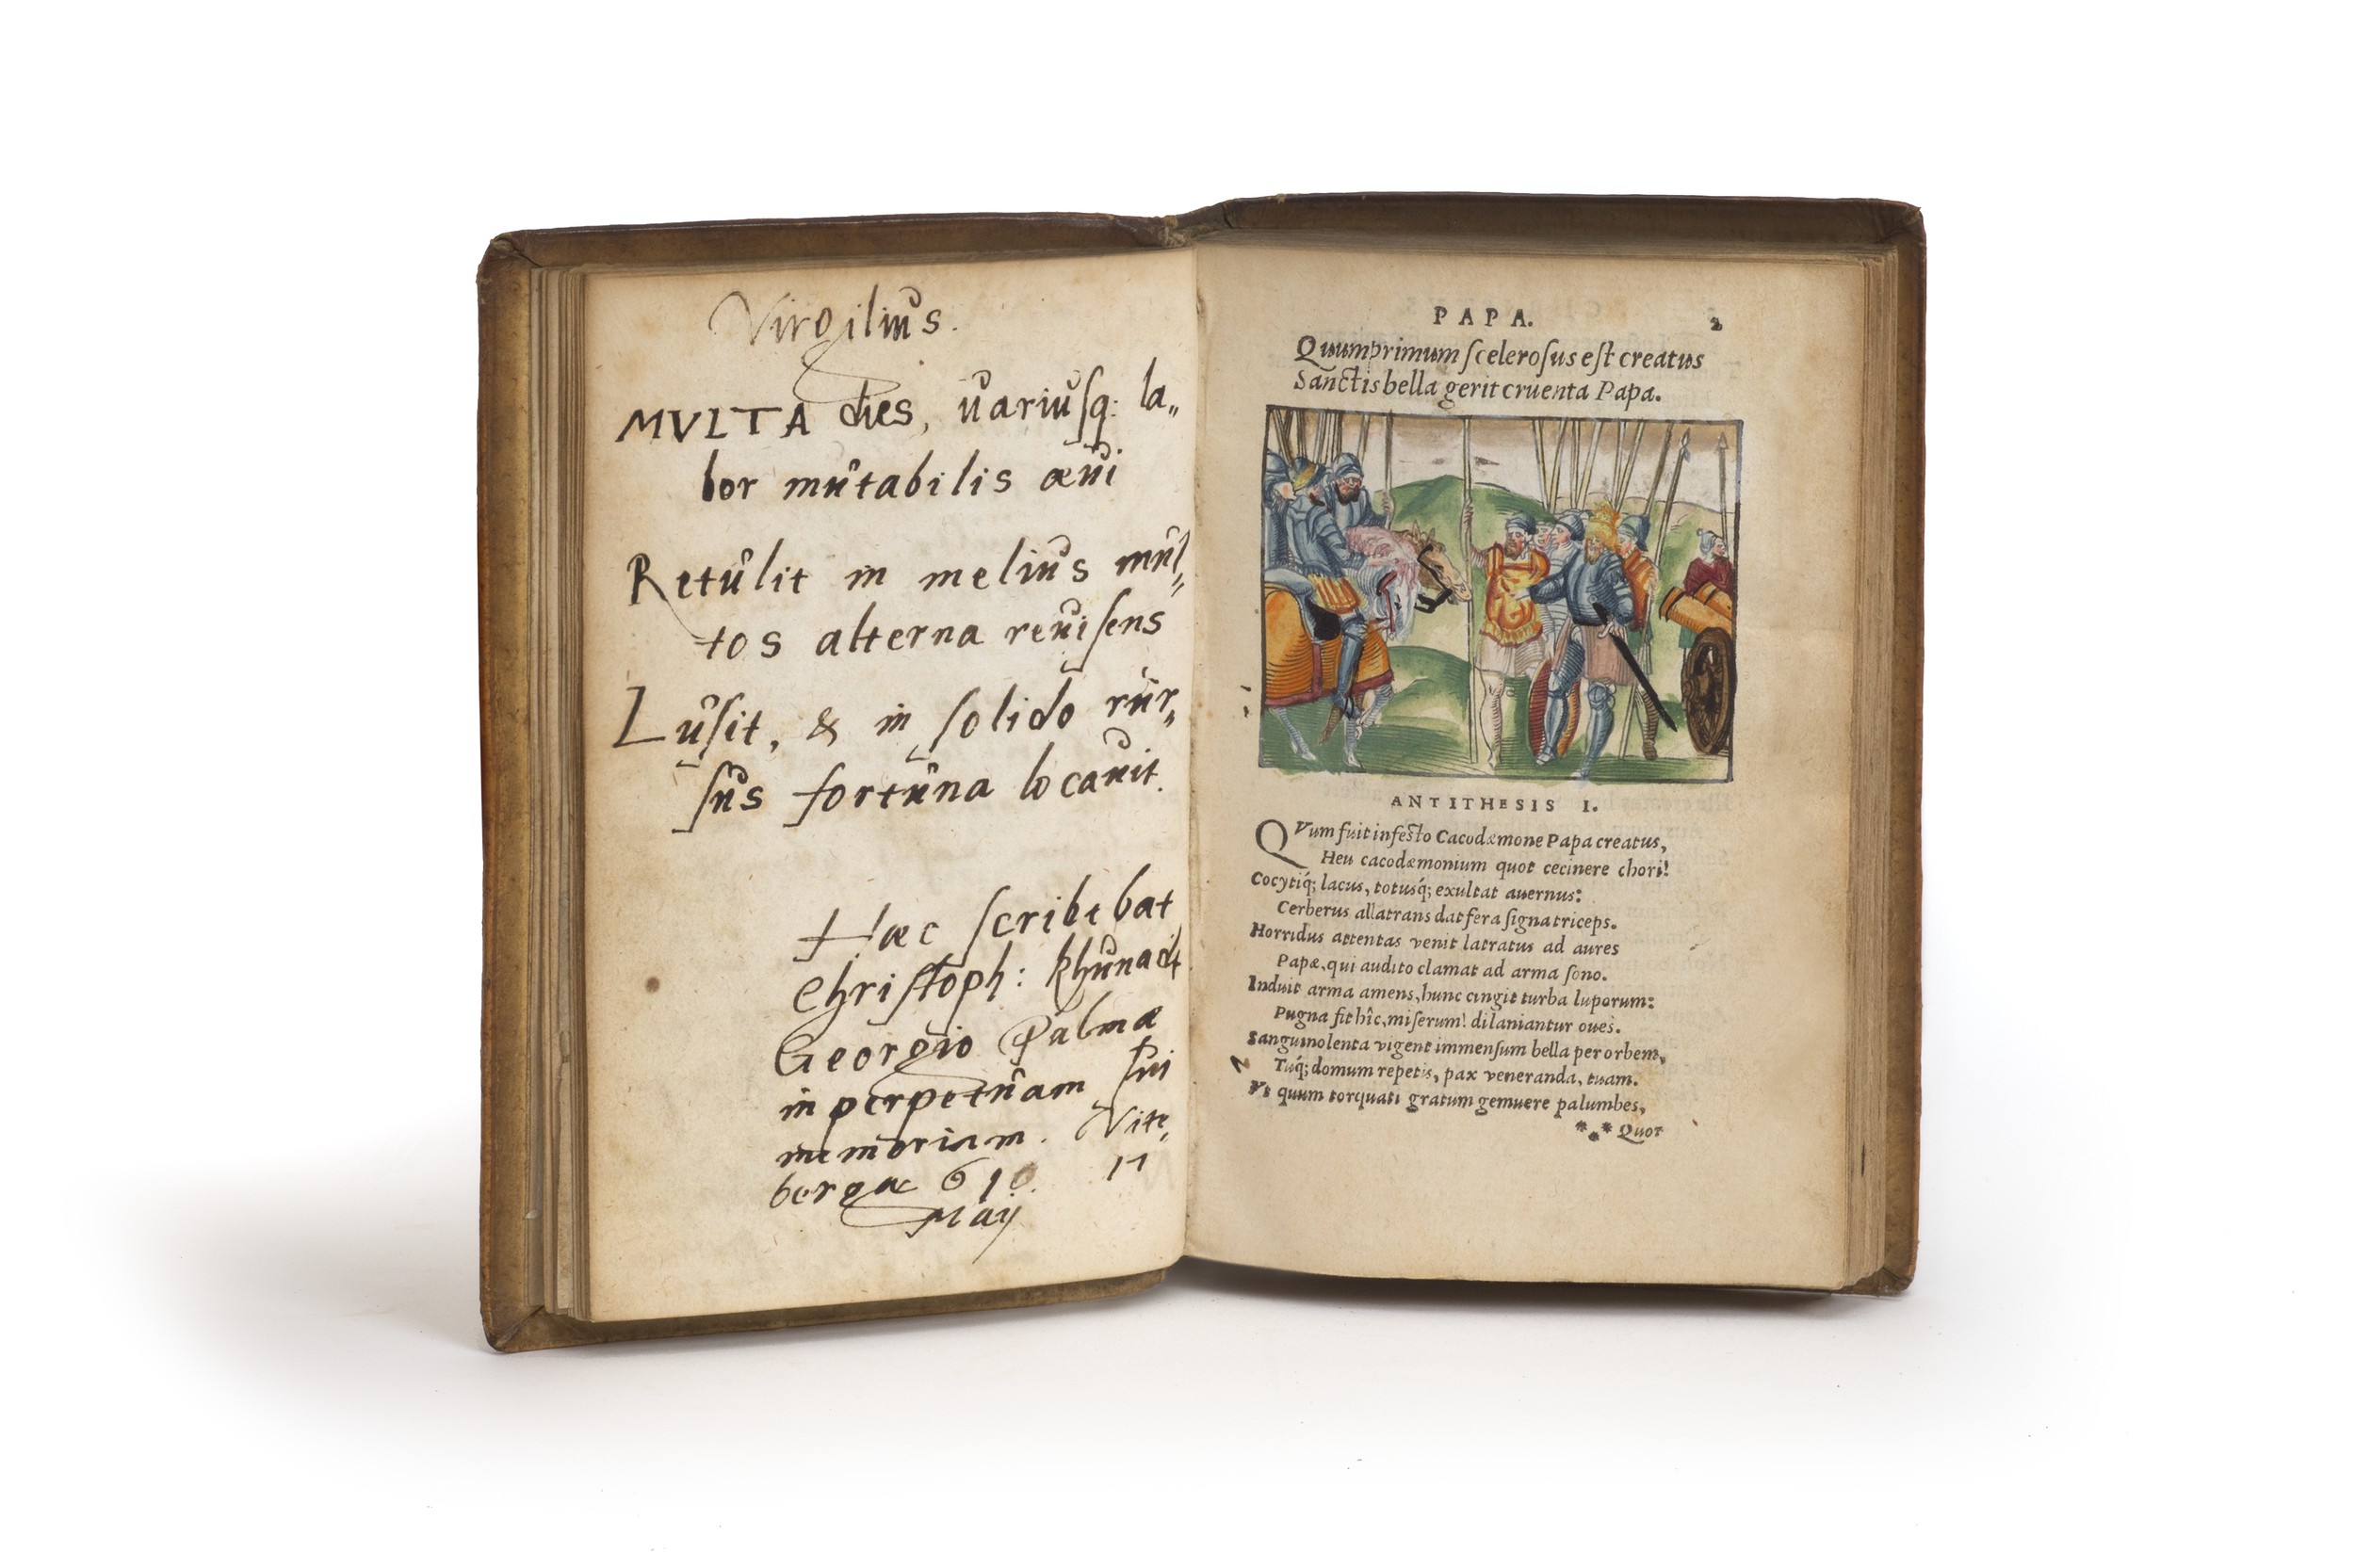 Virgilius.
MVLTA dies, variusq: la„
bor mutabilis ævi
Retulit in melius mul„
tos alterna revisens
Lusit, & in solido rur„
sus fortuna locavit.
Hæc scribebat
Christoph:
Georgio Palmæ
in perpetuam sui
memoriam. Vite„
bergæ 610. 17
Maij
PAPA. 2
Quumprimum ſceleroſus eſt creatus
Sanctis bella gerit cruenta Papa.
ANTITHESIS I.
QVum fuit infeſto Cacodæmone Papa creatus,
Heu cacodæmonium quot cecinere chori!
Cocytiq́; lacus, totusq́; exultat auernus:
Cerberus allatrans dat fera ſigna triceps.
Horridus attentas venit latratus ad aures
Papæ, qui audito clamat ad arma ſono.
Induit arma amens, hunc cingit turba luporum:
Pugna fit hîc, miſerum! dilaniantur oues.
Sanguinolenta vigent immenſum bella per orbem,
Tuq́; domum repetis, pax veneranda, tuam.
Vt quum torquati gratum gemuere palumbes,
*** Quot